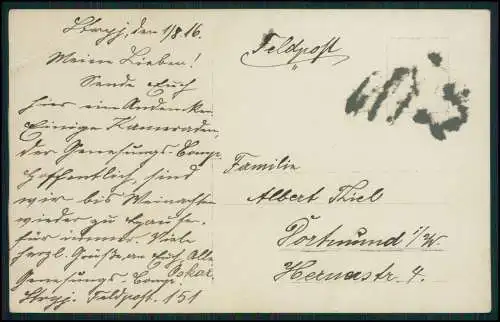 Stryj, den 1/8 16.
Meine Lieben!
Sende Euch
hier ein Andenken.
Einige Kameraden,
der Genesungs-Komp.
Hoffentlich, sind
wir bis Weinachten
wieder zu Hause.
für immer. Viele
herzl. Grüße, an Euch Alle
Oskar.
Genesungs-Komp.
Stryj. Feldpost. 151
Feldpost
Familie
Albert Thiel
Dortmund i/W.
Hernerstr 4.